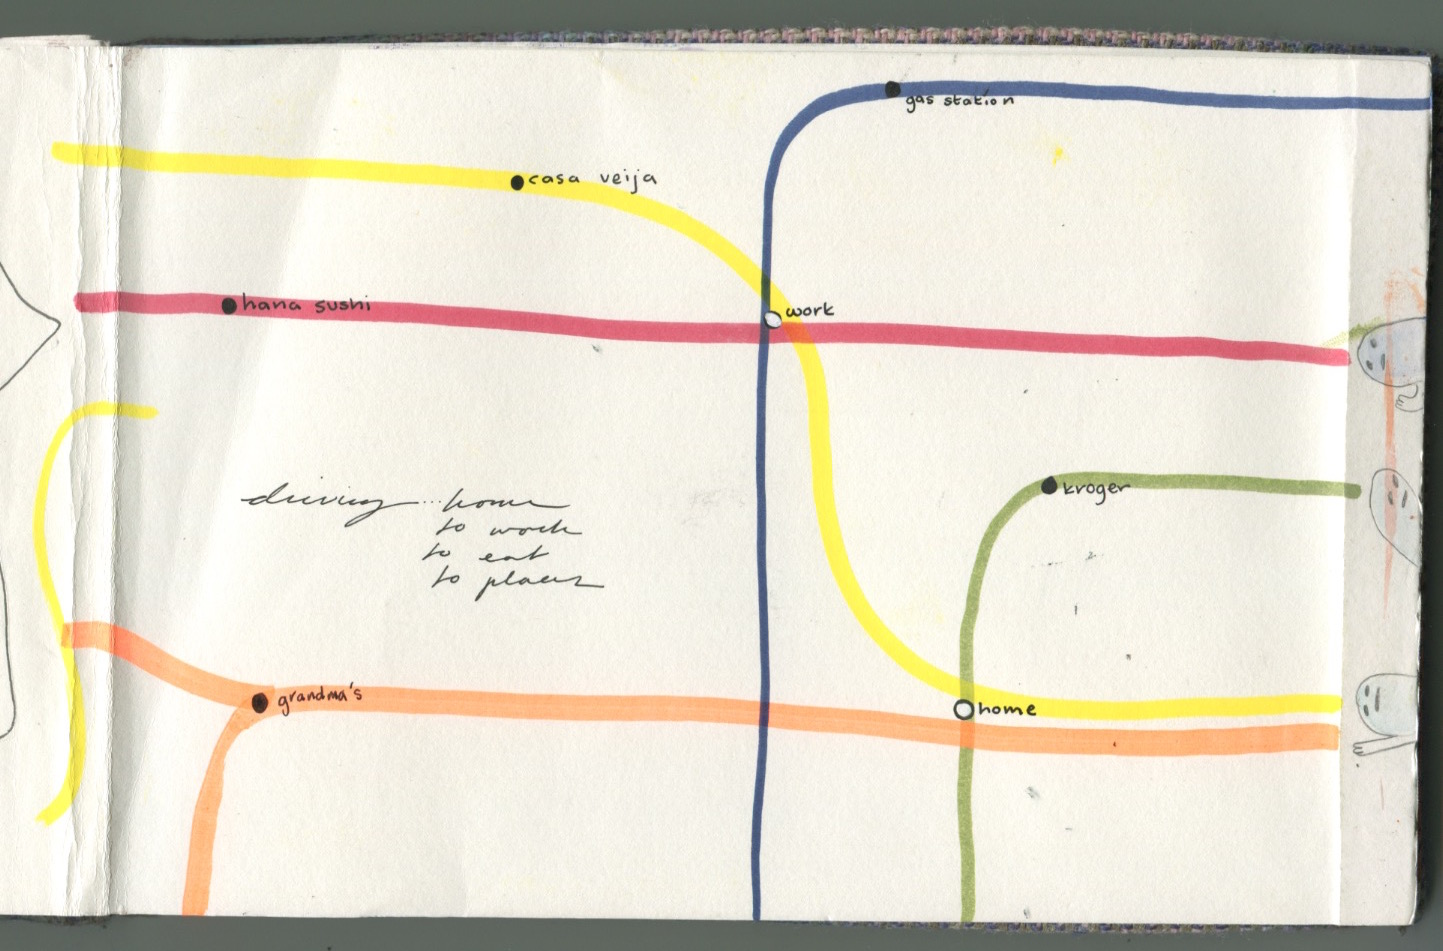 gas station
casa veija
hana sushi
work
kroger
driving... home
to work
to eat
to places
grandma's
home